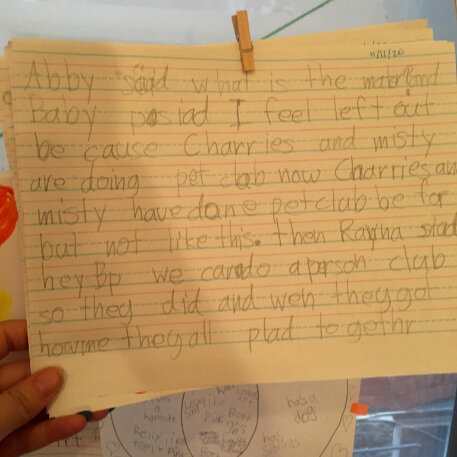 11/11/20
Abby said what is the
Baby posiad I feel left out
be cause Charries and misty
are doing pet clab now Charries an
misty have done petclub be for
but not like this. then Rayna siad
hey Bp we can do a parson club
so they did and weh they got
howme they all plad to gethr
has a
dog